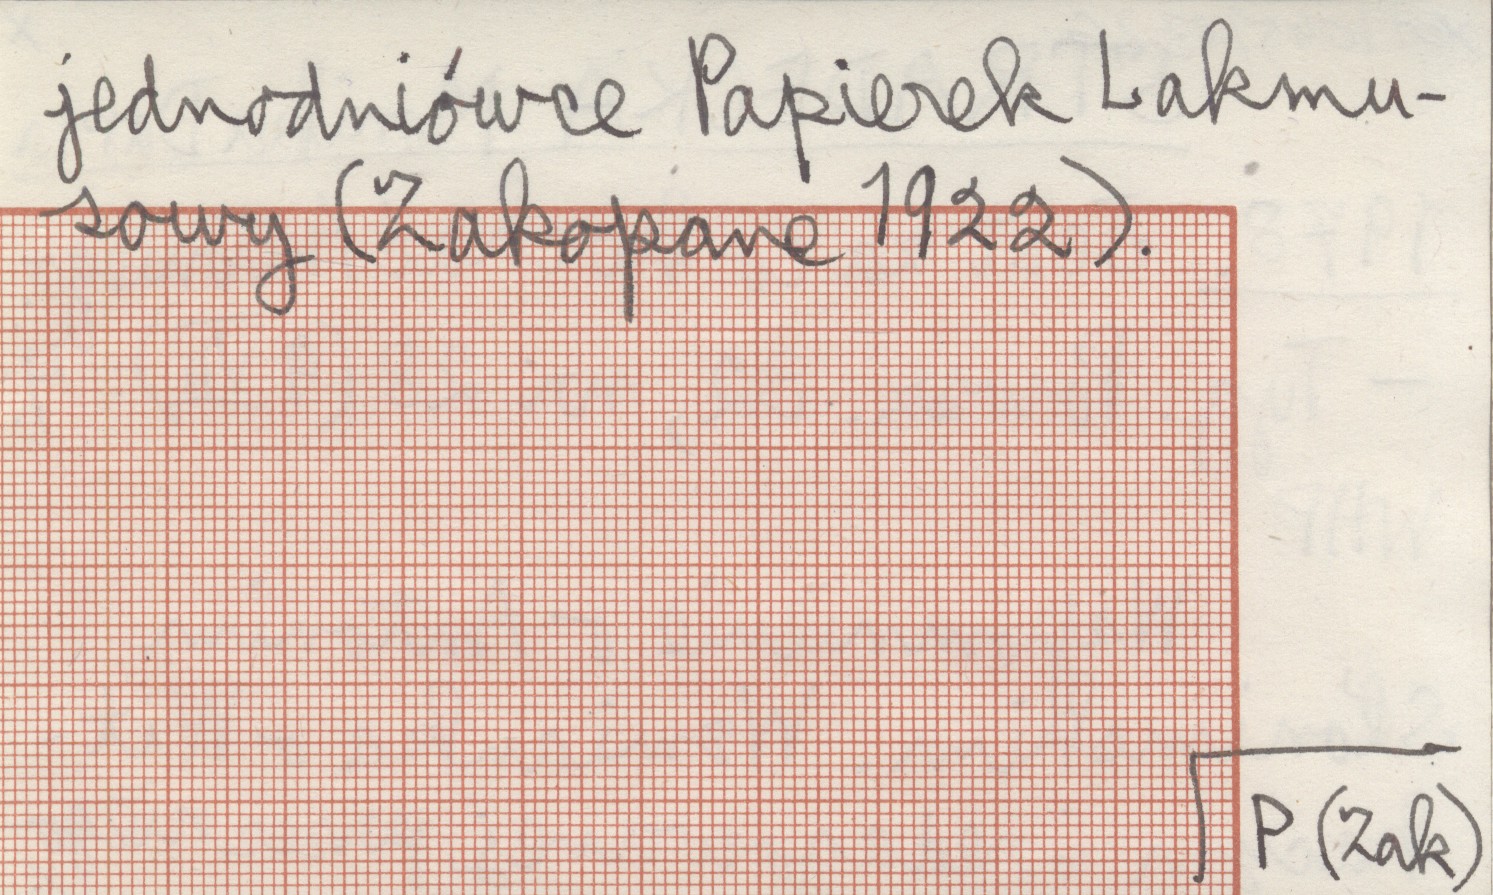 jednodniówce Papierek Lakmu-
sowy (Zakopane 1922).
P (Zak)